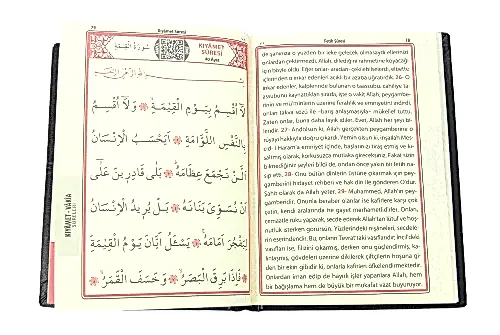 79
Kıyâmet Sûresi
سُورَةُ الْقِيٰمَةِ
KIYÂMET
SÛRESİ
40 Âyet
لَٓا اُقْسِمُ بِيَوْمِ الْقِيٰمَةِۙ وَلَٓا اُقْسِمُ
بِالنَّفْسِ اللَّوَّامَةِۜ اَيَحْسَبُ الْاِنْسَانُ
اَلَّنْ نَجْمَعَ عِظَامَهُۜ بَلٰى قَادِر۪ينَ عَلٰٓى
اَنْ نُسَوِّيَ بَنَانَهُ بَلْ يُر۪يدُ الْاِنْسَانُ
لِيَفْجُرَ اَمَامَهُۚ يَسْـَٔلُ اَيَّانَ يَوْمُ الْقِيٰمَةِۜ
فَاِذَا بَرِقَ الْبَصَرُۙ وَخَسَفَ الْقَمَرُۙ
KIYÂMET - VÂKIA
SÛRELERİ
Fetih Sûresi
18
de şanınıza o yüzden bir leke gelecek olmasaydı ellerinizi
onlardan çektirmezdi. Allah, dilediğini rahmetine koyacağı
için böyle oldu. Eğer onlar aradan çekilebilselerdi, elbette
içlerinden o inkar edenleri acıklı bir azaba uğratırdık. 26- O
inkar edenler, kalplerinde bulunan o taassubu, cahiliye ta-
assubunu kaynattıkları sırada, işte o vakit Allah, peygambe-
rinin ve mü'minlerin üzerine ferahlık ve emniyetini indirdi,
onları takva sözü ile
Zaten onlar, buna daha layık idiler. Evet, Allah her şeyi bi-
lendir. 27- Andolsun ki, Allah gerçekten peygamberine o
rüyayı hakkıyla doğru çıkardı. Yemin olsun ki, inşallah Mesci-
d-i Haram'a emniyet içinde, başlarınızı tıraş etmiş ve kı-
saltmış olarak, korkusuzca mutlaka gireceksiniz. Fakat sizin
bilmediğiniz şeyleri bildi de, ondan önce yakın bir fetih na-
sip etti. 28- O'nu bütün dinlerin üstüne çıkarmak için pey-
gamberini hidayet rehberi ve hak din ile gönderen O'dur.
Şahit olarak da Allah yeter. 29- Muhammed, Allah'ın pey-
gamberidir. Onunla beraber olanlar ise kafirlere karşı çok
çetin, kendi aralarında ise gayet merhametlidirler. Onları,
cemaatle ruku yaparak, secde ederek Allah'tan lütuf ve hoş-
nutluk isterken görürsün. Yüzlerindeki nişaneleri, secdele-
rin eserindendir. Bu, onların Tevrat'taki vasıflarıdır; İncil'deki
vasıfları ise, filizini çıkarmış, derken onu güçlendirmiş, ka-
lınlaşmış, gövdeleri üzerine dikilerek çiftçilerin hoşuna gi-
den bir ekin gibidir ki, onlarla kafirleri öfkelendirmektedir.
Onlardan iman edip de hayırlı işler yapanlara Allah, hem
bir bağışlama hem de büyük bir mükafat vaad buyurdu.